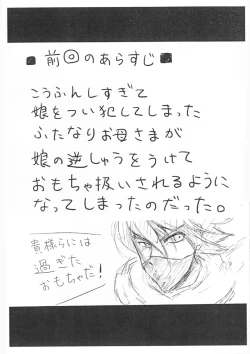 ■前回のあらすじ■
こうふんしすぎて
娘をつい犯してしまった
ふたなりお母さまが
娘の逆しゅうをうけて
おもちゃ扱いされるように
なってしまったのだった。
貴様らには
過ぎた
おもちゃだ!